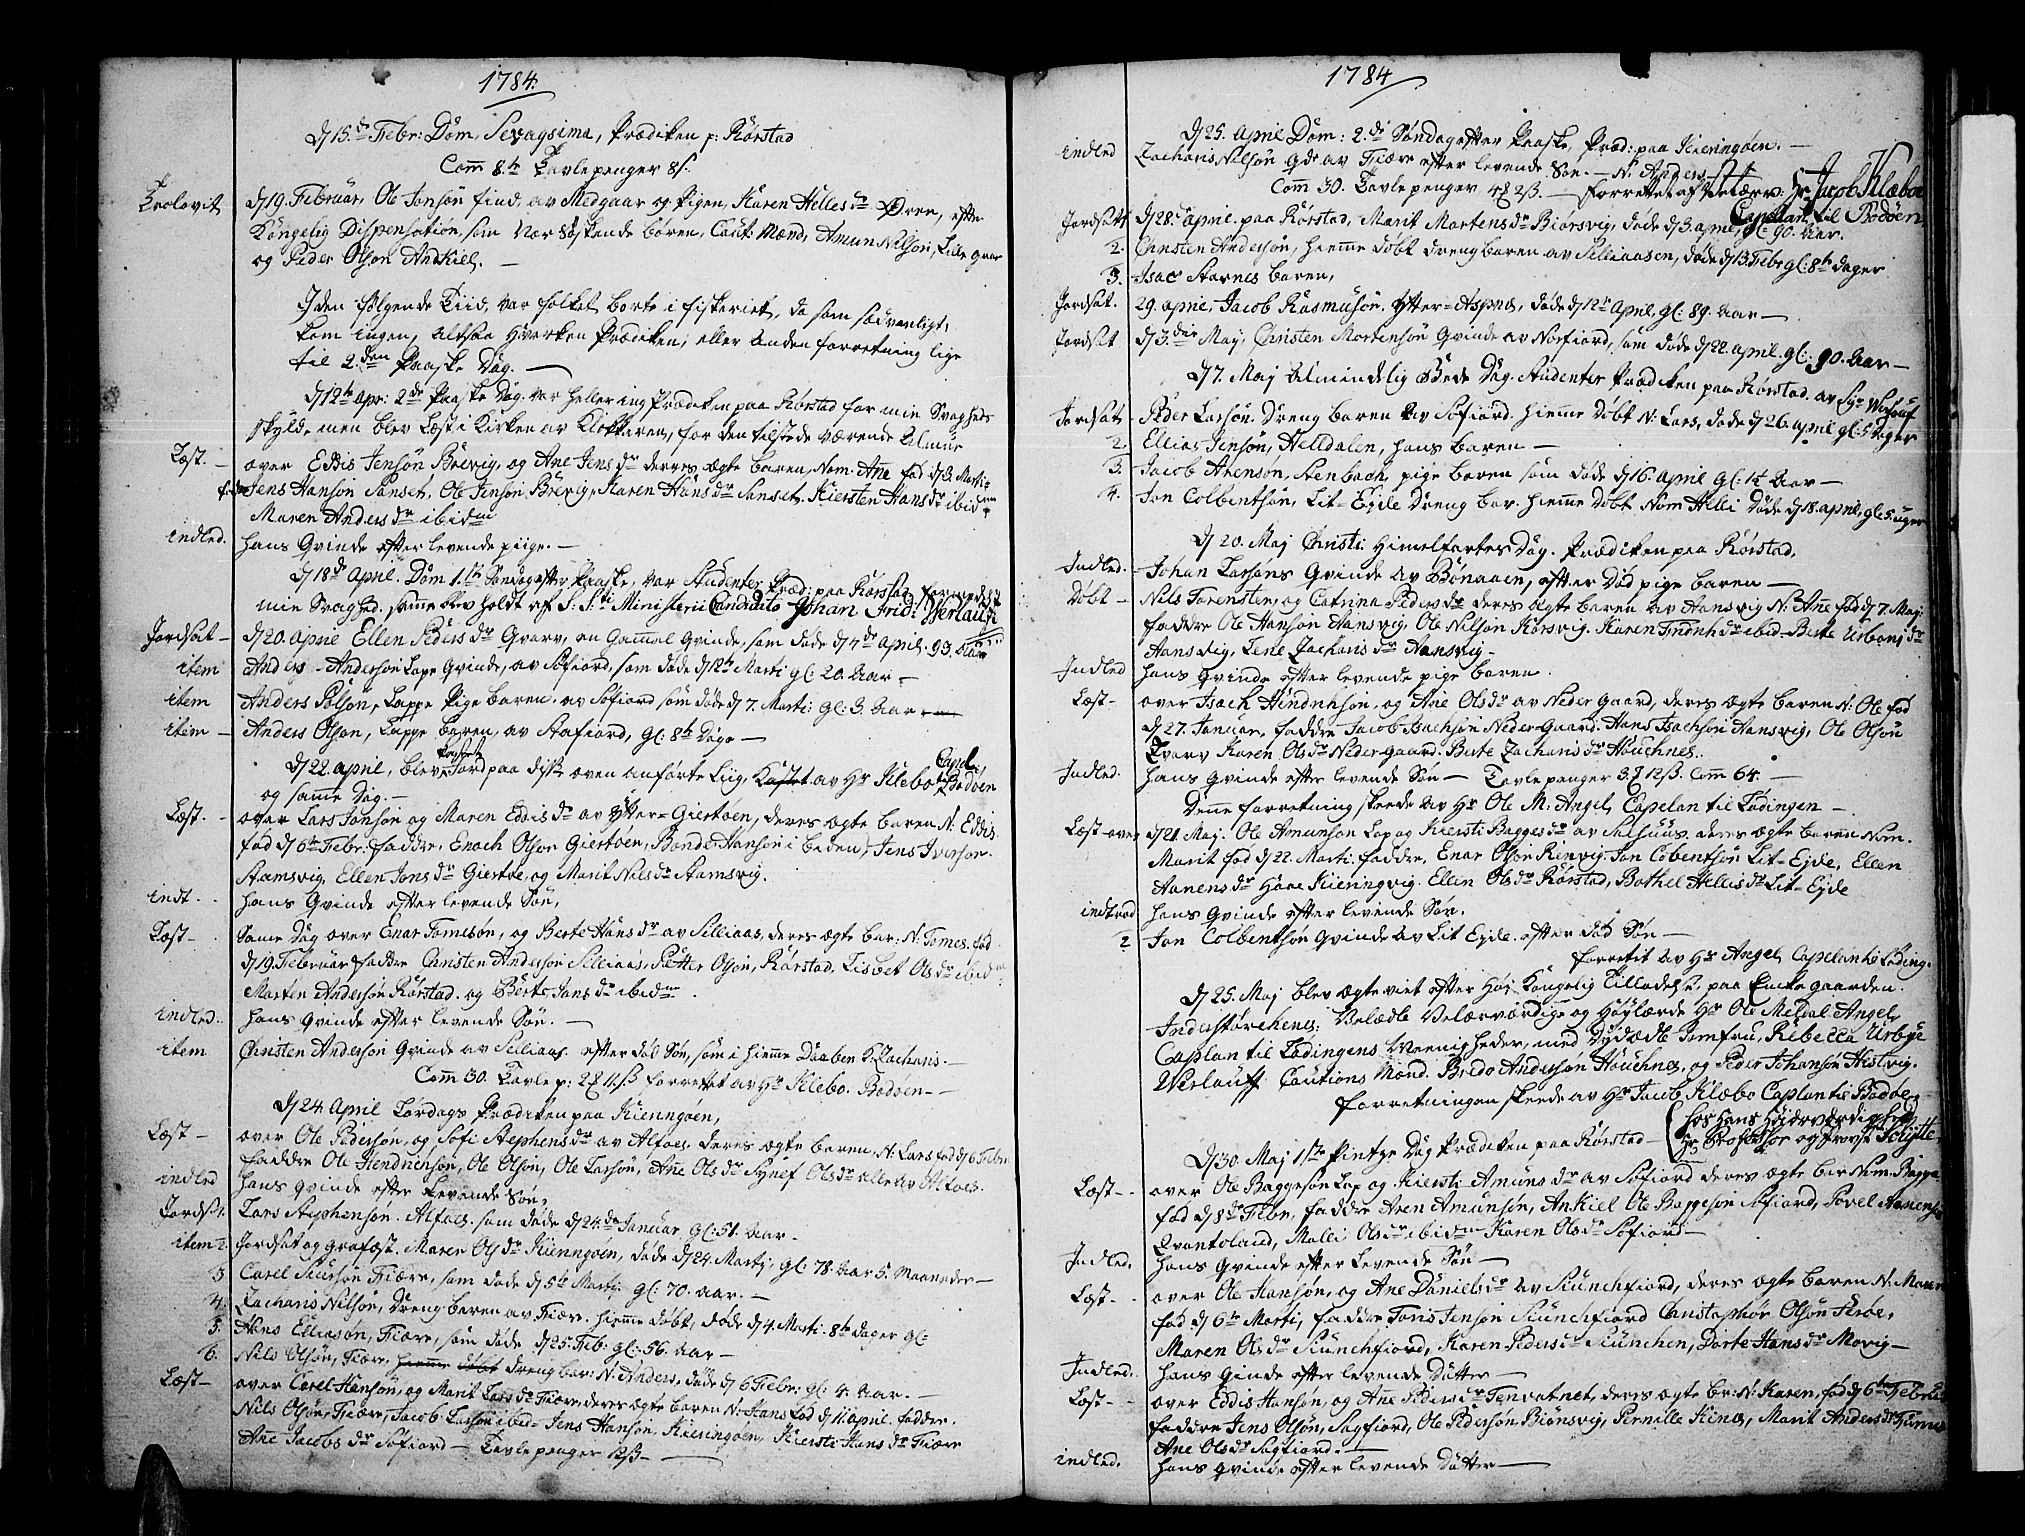 1784.
D/15.de Febr: Dom. Sexagsima, Prædiken p: Rørstad
Com 8te Tavlepenger 8 s.
Trolovit D/19. Februar, Ole Jonsøn find, av Medgaar og Pigen, Karen Hellesdr Øren, efter
Kongelig Dispensation, som Nær Søskende børen, Caut: Mænd, Amun Nilsøn, Lille gaar
og Peder Olsøn Andkiel. —
I den følgende Tiid, var folket borte i fiskeriet, da som sædvanligt,
kom ingen, altsaa hverken Prædiken, eller anden forretning lige
til 2.den Paaske Dag. —
D/12te apr: 2de Paaske Dag. var heller ing Prædiken paa Rørstad for min Svagheds
skyld, men blev Læst i Kirken av Klokkaren, for den tilstede værende Almue
Læst. — over Eddis Jensøn Brevig, og Ane Jensdr deres ægte baren, Nom. Ane fød D/3. Marti
Jens Hansøn Sanset, Ole Jensøn Brevig, Karen Hansdr Sanset. Kiersten Hansdr ibidm
Maren Andersdr ibidm
indled. hans Qvinde efter levende piige. —
D/18de April. Dom 1.ste Søndag efter Paaske, var Studenter Præd: paa Rørstad formedelst
min Svaghed. samme blev holdt af S: S:ti Ministerii Candidato Johan Frid: Werlauff
Jordsat — D/20. april Ellen Pedersdr Qvarv, en Gammel Qvinde, som døde D/4de april. 93. Aar
item Anders Andersøn Lape Qvinde, av Søfiord, som døde D/12te Marti gl: 20. Aar —
item Anders Polsøn, Lappe Pige baren, av Søfiord som døde D/7. Marti: gl: 3. Aar —
item — Anders Olsøn, Lappe baren, av Søfiord, gl: 8te Dage —
D/22. april, blev kastet Jord paa disse oven anførte Liig, Kastet av Hr Klebo Capel. t. Bodøen
og samme Dag. —
Læst. — over Lars Jonsøn og Maren Eddisdr av Ytter-Giertøen, deres ægte baren N: Eddis.
fød D/6te Febr: faddre, Enoch Olsøn Giertøen, Bonde Hansøn i beden, Jens Iversøn
Stamsvig, Ellen Jonsdr Giertøe, og Marit Nilsdr Stamsvig.
indt. . hans Qvinde efter levende Søn,
Læst — Same Dag over Enar Tomesøn, og Berte Hansdr av Silliaas, deres ægte bar: N: Tomes. fød
D/19. Februar faddre Christen Andersøn Silliaas, Petter Olsøn, Rørstad. Lisbet Olsdr ibidm
Marten Andersøn Rørstad. og Berte Jansdr ibidm
indled. hans Qvinde efter levende Søn. —
item Christen Andersøn Qvinde av Silliaas. efter død Søn, som i hieme Daaben k. Zacharis. —
Com 30. Tavle p: 2 ℔ 11. ß forretet av Hr Klebo. Bodøen —
D/24 April Lørdags Prædiken paa Kierringøen,
Læst — over Ole Pedersøn, og Sofi Stephensdr av Alfaes deres ægte baren N: Lars fød D/6 Febr
faddre Ole Hendrichsøn, Ole Olsøn, Ole Larsøn, Ane Olsdr Synef Olsdr alle av Alfaes.
indled hans qvinde efter Levende Søn,
Jordst. Lars Stephensøn. Alfaes. som døde D/24de Januar gl: 51. Aar —
item 2. Jordsat og Grafæst. Maren Olsdr Kierringøen, døde D/24. Martj, gl: 78. Aar 5. Maaneder —
3 Carel Siursøn Fiære, som døde D/5te Martj gl: 70. aar. —
4. Zacharis Nilsøn, Dreng baren av Fiære. hieme døbt, døde D/4. Marti. 8te dager gl:
5. Hans Elliasøn, Fiære, som døde D/25. Feb: gl: 56. Aar —
6. Nils Olsøn, Fiære, hieme døbt dreng bar: N: Anders, døde D/6 Febr: gl: 4. Aar. —
Læst — over Carel Hansøn, og Marit Larsdr Fiære, deres ægte baren N: Hans fød D/11. april. faddre.
Nils Olsøn, Fiære, Jacob Larsøn ibid — Jens Hansøn, Kierringøen, Kiersti Hansdr Fiære
Ane Jacobsdr Søfiord — Tavle penger 12 ß —
1784
D/25. April Dom: 2.de Søndag efter Paaske, Præd: paa Kierringøen. —
indled Zacharis Nilsøn Qde av Fiære efter levende Søn. — N: Anders
Com 30. Tavlepenger 4 ℔ 2 ß — forrettet af Hr Jacob Klæboe
Capelan til Bodøen
Jordsatt D/28. april. paa Rørstad, Marit Martensdr Biørsvig, døde D/3. april, gl: 90. Aar.
2. Christen Andersøn, hieme døbt dreng baren av Silliaasen, døde D/13. Febr gl: 8te dager
3. Isac Starnes baren,
Jordsat. 29. april, Jacob Rasmusøn. Ytter-Aspnes, døde D/12te April, gl: 89. Aar —
Jordsat D/3.die Maj, Christen Mortensøn Qvinde av Norfiord, som døde D/22. april. gl: 90. Aar —
D/7. Maj Almindelig Bede Dag. Studenter Prædiken paa Rørstad. av Sgr Werlauf
Jordsat Peder Larsøn. Dreng baren av Søfiord. hieme døbt N: Lars, døde D/26. april gl: 5 dager
2. Ellias Jensøn, Helldalen, hans baren —
3. Jacob Arensøn, Stenbach, pige baren som døde D/16. april gl: 1½ Aar —
4. Jon Colbentsøn, Lit-Ejde Dreng bar. hieme døbt Nom Helli døde D/18. april, gl: 5 uger
D/20. Maj Christi Himelfartes Dag. Prædiken paa Rørstad,
Indled. Johan Larsøns Qvinde av Bønaaen, efter død pige baren —
Døbt — Nils Torensten, og Catrina Pedersdr deres ægte baren av Hansvig N: Ane fød D/7. Maj.
faddre Ole Hansøn Hansvig, Ole Nilsøn Korsvig. Karen Findrichdr ibid — Berte Urbansdr
Hansvig, Lene Zacharisdr Hansvig —
Indled hans qvinde efter levende pige baren.
Læst — over Isach Hindrichsøn, og Ane Olsdr av Neder gaard, deres ægte baren N: Ole fød
D/27. Januar, faddre Jacob Isachsøn Neder-Gaard. Hans Isachsøn Hansvig, Ole Olsøn
Qvarv Karen Olsdr Neder-gaard. Berte Zacharisdr Houchnes.
Indled. hans Qvinde efter levende Søn — Tavlepenger 3. ℔ 12 ß. Com 64. —
Denne forretning skeede av Hr Ole M: Angel, Capelan til Lødingen —
Læst over D/21. Maj. Ole Amunsøn Lap og Kiersti Baggesdr av Salsuus. deres ægte baren Nom.
Marit fød D/22. Marti. faddre, Enar Olsøn Rinvig. Jon Colbentsøn Lit-Ejde, Ellen
Aanensdr Haae Kierringvig. Ellen Olsdr Rørstad, Bothel Hellisdr Lit-Ejde
indtrad hans Qvinde efter levende Søn.
2 Jon Colbentsøn Qvinde av Lit Ejde. efter død Søn —
forretit av Hr Angel, Capelan til Løding.
D/25. Maj blev ægteviet efter Høj Kongelig Tilladelse. paa Enkegaarden.
Inderstørchenes: Velædle Velærværdige og Høylærde Hr Ole Meldal Angel,
Caplan til Lødingens Meenigheder, med Dydædle Jomfru, Rebecca Urbye
Werlauff. Cautions Mænd. Brede Andersøn Houchnes, og Peder Johansøn Hestvig.
forretningen skeede av Hr Jacob Klæbo Caplan til Bodøe,
hos hans Høiærværdighed
Hr Professor og Provst Schytte.
D/30. Maj 1ste Pintze Dag Prædiken paa Rørstad —
Læst — over Ole Baggesøn Lap og Kiersti Amunsdr av Søfiord deres ægte bar Nom. Bagge
fød D/8de Febr, faddre Aren Amunsøn, Ankiel Ole Baggesøn Søfiord, Povel Aanensøn
Qvantoland, Malli Olsdr ibidm Karen Olsdr Søfiord —
Indled. hans Qvinde efter Levende Søn —
Læst — over Ole Hansøn, og Ane Danielsdr av Siunchfiord, deres ægte baren N: Maren
fød D/6te Marti, faddre Tøris Jensøn Siunchfiord Christophør Olsøn Færøe,
Maren Olsdr Siunchfiord, Karen Pedersdr Siunchen, Dorte Hansdr Movig —
Indled. hans Qinde efter levende Datter —
Læst — over Eddis Hansøn, og Ane Pedersdr Tenvatnet, deres ægte br: N: Karen, fød D/6te Februar
faddre Jens Olsøn, Sagfiord, Ole Pedersøn Biønsvig, Pernille Kines, Marit Andersdr
Ane Olsdr Sagfiord. —
indled. hans Qvinde efter levende Datter —